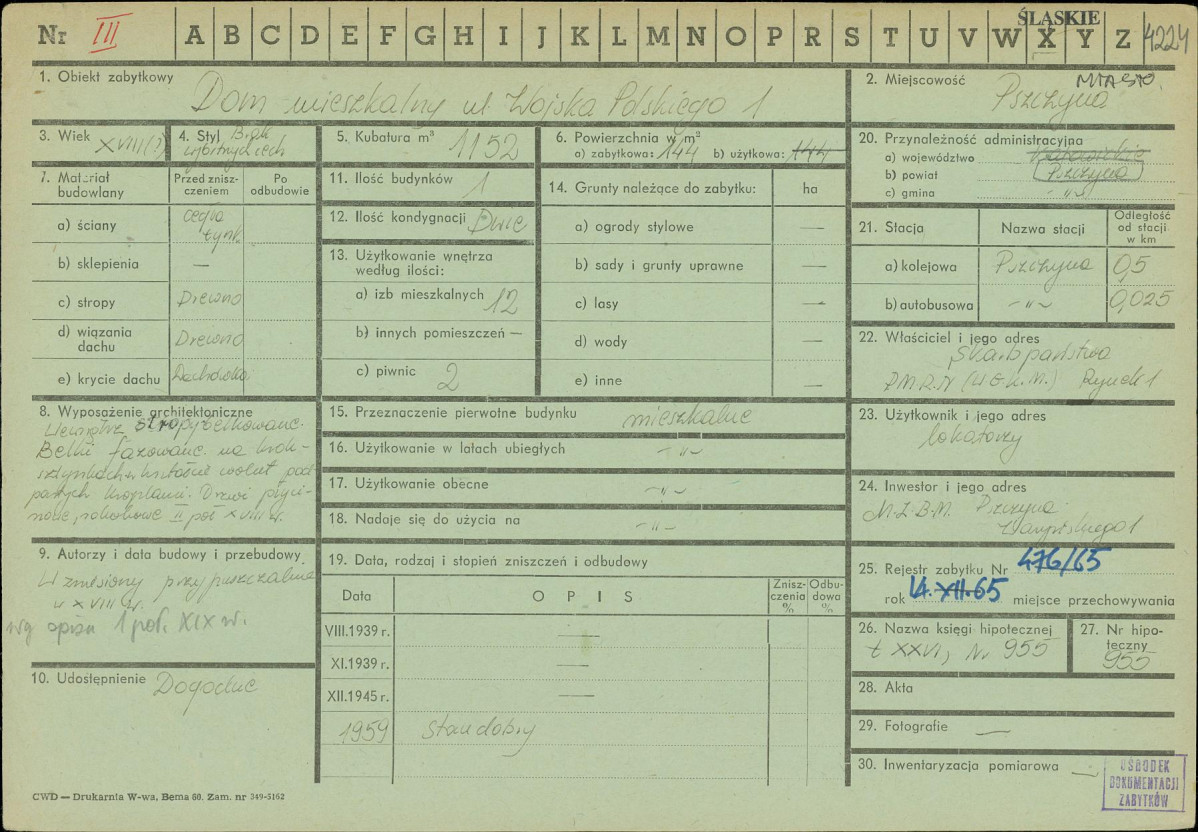 Nr III A B C D E F G H I J K L M N O P R S T U V W X Y Z 4224
ŚLĄSKIE
1. Obiekt zabytkowy
Dom mieszkalny ul. Wojska Polskiego 1
2. Miejscowość MIASTO
Pszczyna
3. Wiek XVIII(?)
4. Styl Brak
wybitnych cech
5. Kubatura m³ 1152
6. Powierzchnia w m²
a) zabytkowa: 144 b) użytkowa: 144
7. Materiał budowlany
Przed zniszczeniem
Po odbudowie
a) ściany cegła
tynk.
b) sklepienia —
c) stropy Drewno
d) wiązania dachu Drewno
e) krycie dachu Dachówka
8. Wyposażenie architektoniczne
Wewnątrz stropy belkowane.
Belki fazowane na
wolut pod
Drzwi
II poł XVIII w.
9. Autorzy i data budowy i przebudowy
Wzniesiony przypuszczalnie
w XVIII w.
wg opisu 1 poł. XIX w.
10. Udostępnienie Dogodne
11. Ilość budynków 1
12. Ilość kondygnacji Dwie
13. Użytkowanie wnętrza
według ilości:
a) izb mieszkalnych 12
b) innych pomieszczeń —
c) piwnic 2
14. Grunty należące do zabytku: ha
a) ogrody stylowe —
b) sady i grunty uprawne —
c) lasy —
d) wody —
e) inne —
15. Przeznaczenie pierwotne budynku mieszkalne
16. Użytkowanie w latach ubiegłych -"-
17. Użytkowanie obecne -"-
18. Nadaje się do użycia na -"-
19. Data, rodzaj i stopień zniszczeń i odbudowy
Data OPIS Zniszczenia % Odbudowa %
VIII.1939 r. —
XI.1939 r. —
XII.1945 r. —
1959 stan dobry
20. Przynależność administracyjna
a) województwo Katowickie
b) powiat Pszczyna
c) gmina -"-
21. Stacja Nazwa stacji Odległość od stacji w km
a) kolejowa Pszczyna 0,5
b) autobusowa -"- 0,025
22. Właściciel i jego adres
Skarb państwa
P.M.R.N (W.G.K.M.) Rynek 1
23. Użytkownik i jego adres
lokatorzy
24. Inwestor i jego adres
M.Z.B.M. Pszczyna
1
25. Rejestr zabytku Nr 476/65
rok 14.XII.65 miejsce przechowywania
26. Nazwa księgi hipotecznej
t XXVI, Nr 955
27. Nr hipoteczny
955
28. Akta
29. Fotografie —
30. Inwentaryzacja pomiarowa —
OŚRODEK
DOKUMENTACJI
ZABYTKÓW
CWD — Drukarnia W-wa, Bema 60. Zam. nr 349-5162